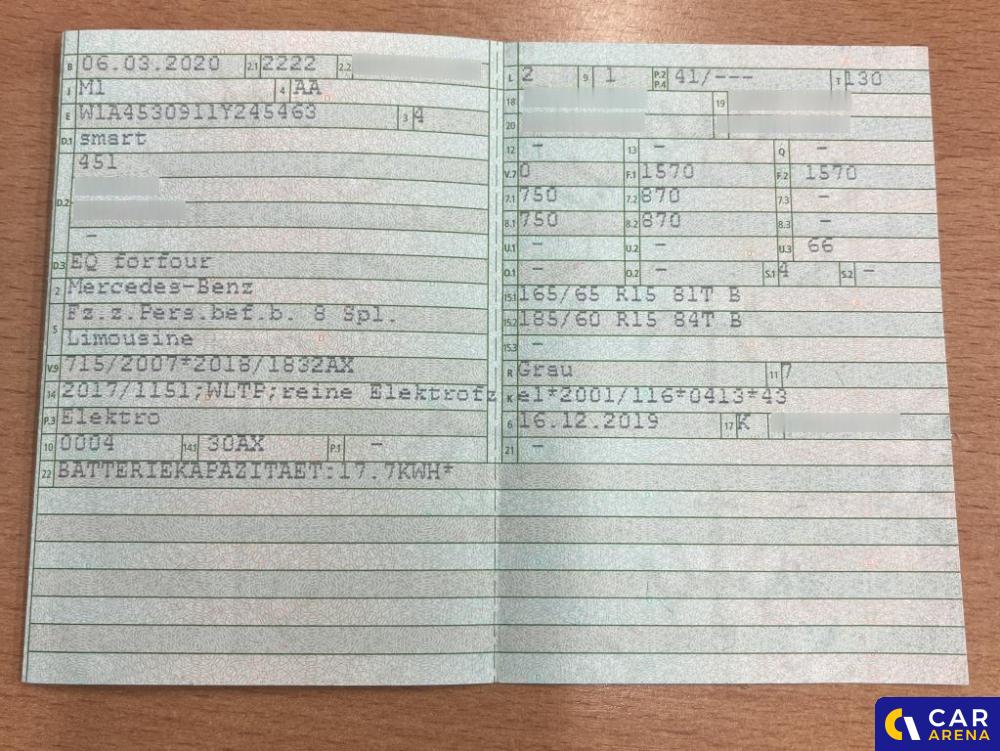 B 06.03.2020 2.1 2222 2.2
J M1 4 AA
E W1A4530911Y245463 3 4
D.1 smart
451
D.2
-
D.3 EQ forfour
2 Mercedes-Benz
Fz.z.Pers.bef.b. 8 Spl.
5
Limousine
V.9 715/2007*2018/1832AX
14 2017/1151;WLTP;reine Elektrofz
P.3 Elektro
10 0004 14.1 30AX P.1 -
22 BATTERIEKAPAZITAET:17.7KWH*
L 2 9 1 P.2 P.4 41/--- T 130
18 19
20
12 - 13 - Q -
V.7 0 F.1 1570 F.2 1570
7.1 750 7.2 870 7.3 -
8.1 750 8.2 870 8.3 -
U.1 - U.2 - U.3 66
O.1 - O.2 - S.1 4 S.2 -
15.1 165/65 R15 81T B
15.2 185/60 R15 84T B
15.3 -
R Grau 11 7
K e1*2001/116*0413*43
6 16.12.2019 17 K
21 -
CAR
ARENA